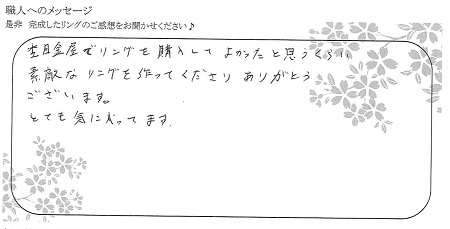 職人へのメッセージ
是非 完成したリングのご感想をお聞かせください♪
杢目金屋でリングを購入してよかったと思うくらい
素敵なリングを作ってくださりありがとう
ございます。
とても気に入ってます。